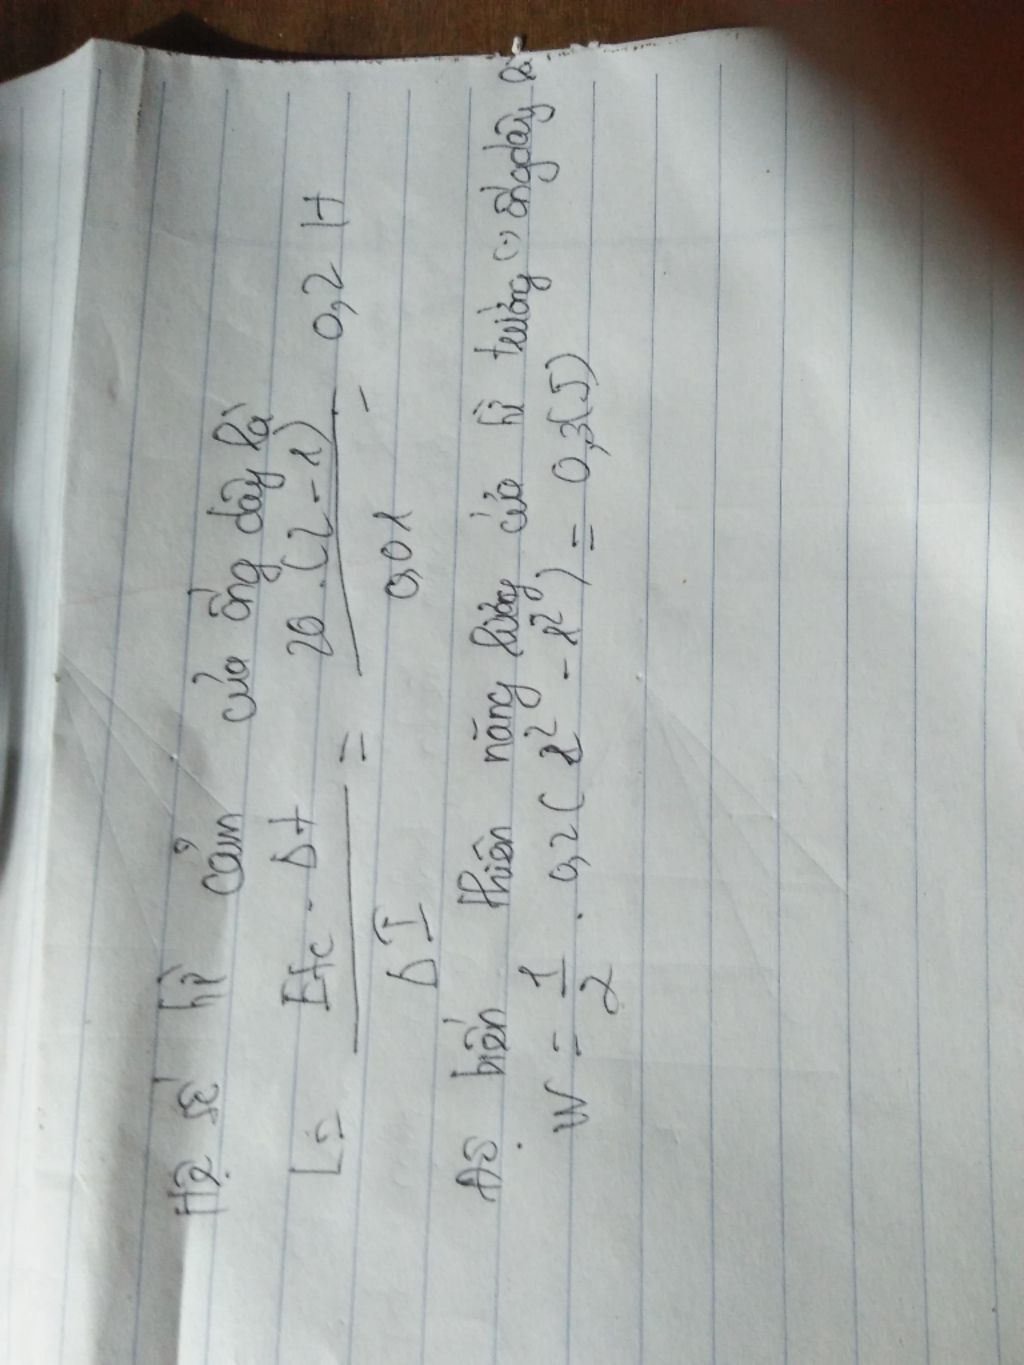 Hệ số hỉ cảm của ống dây là
L = Etc . Δt / ΔI = 20 . (2 - 1) / 0,01 = 0,2 H
Độ biến thiên năng lượng của hỉ trường (.) ống dây là
W = 1/2 . 0,2 ( 2² - 1² ) = 0,3 (J)